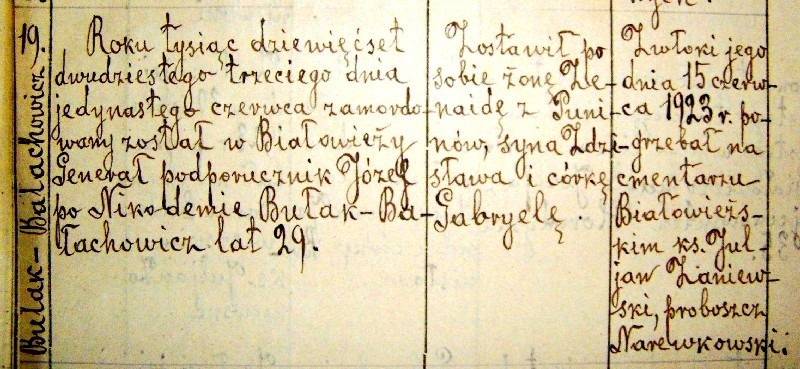 19.
Bułak-Bałachowicz
Roku tysiąc dziewięćset
dwudziestego trzeciego dnia
jedynastego czerwca zamordo-
wany został w Białowieży
Generał podporucznik Józef
po Nikodemie Bułak-Ba-
łachowicz lat 29.
Zostawił po
sobie żonę Ze-
naidę z Puni-
nów, syna Zdzi-
sława i córkę
Gabryelę.
Zwłoki jego
dnia 15 czerw-
ca 1923 r. po-
grzebał na
cmentarzu
Białowiezs-
kim ks. Jul-
jan Zaniew-
ski, proboszcz
Narewkowski.